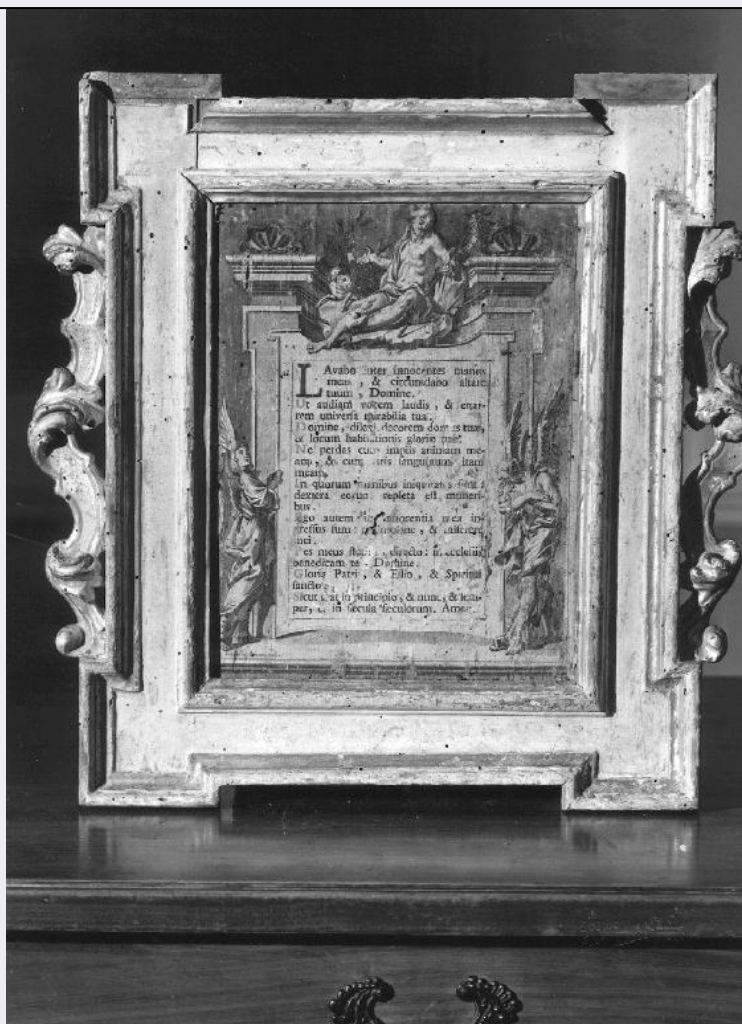 LAvabo inter innocentes manus
meas, & circumdabo altare
tuum, Domine.
Ut audiam vocem laudis, & enar-
rem universa mirabilia tua.
Domine, dilexi decorem domus tuæ,
& locum habitationis gloriæ tuæ.
Ne perdas cum impiis animam me-
am, & cum viris sanguinum vitam
meam.
In quorum manibus iniquitates sunt:
dextera eorum repleta est muneri-
bus.
Ego autem in innocentia mea in-
gressus sum: & miserere
mei.
Pes meus directo: in ecclesiis
benedicam te Domine.
Gloria Patri, & Filio, & Spiritui
sancto.
Sicut erat in principio, & nunc, & sem-
per, & in secula seculorum. Amen.